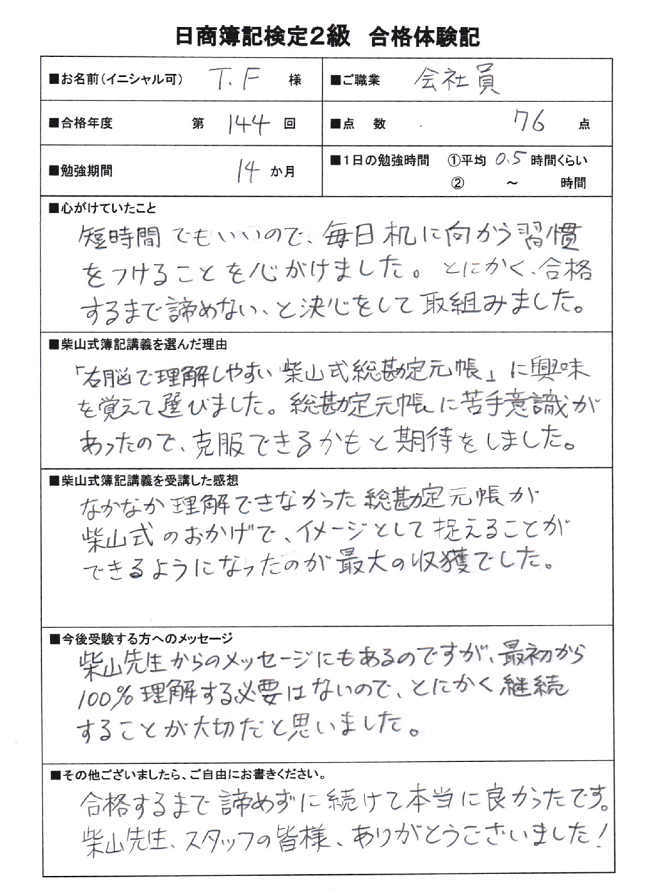 日商簿記検定2級 合格体験記
■お名前(イニシャル可) T.F 様
■ご職業 会社員
■合格年度 第 144 回
■点 数 76 点
■勉強期間 14 か月
■1日の勉強時間 ①平均 0.5 時間くらい
② ~ 時間
■心がけていたこと
短時間でもいいので、毎日机に向かう習慣
をつけることを心がけました。とにかく、合格
するまで諦めない、と決心をして取組みました。
■柴山式簿記講義を選んだ理由
「右脳で理解しやすい柴山式総勘定元帳」に興味
を覚えて選びました。総勘定元帳に苦手意識が
あったので、克服できるかもと期待をしました。
■柴山式簿記講義を受講した感想
なかなか理解できなかった総勘定元帳が
柴山式のおかげで、イメージとして捉えることが
できるようになったのが最大の収獲でした。
■今後受験する方へのメッセージ
柴山先生からのメッセージにもあるのですが、最初から
100%理解する必要はないので、とにかく継続
することが大切だと思いました。
■その他ございましたら、ご自由にお書きください。
合格するまで諦めずに続けて本当に良かったです。
柴山先生、スタッフの皆様、ありがとうございました!